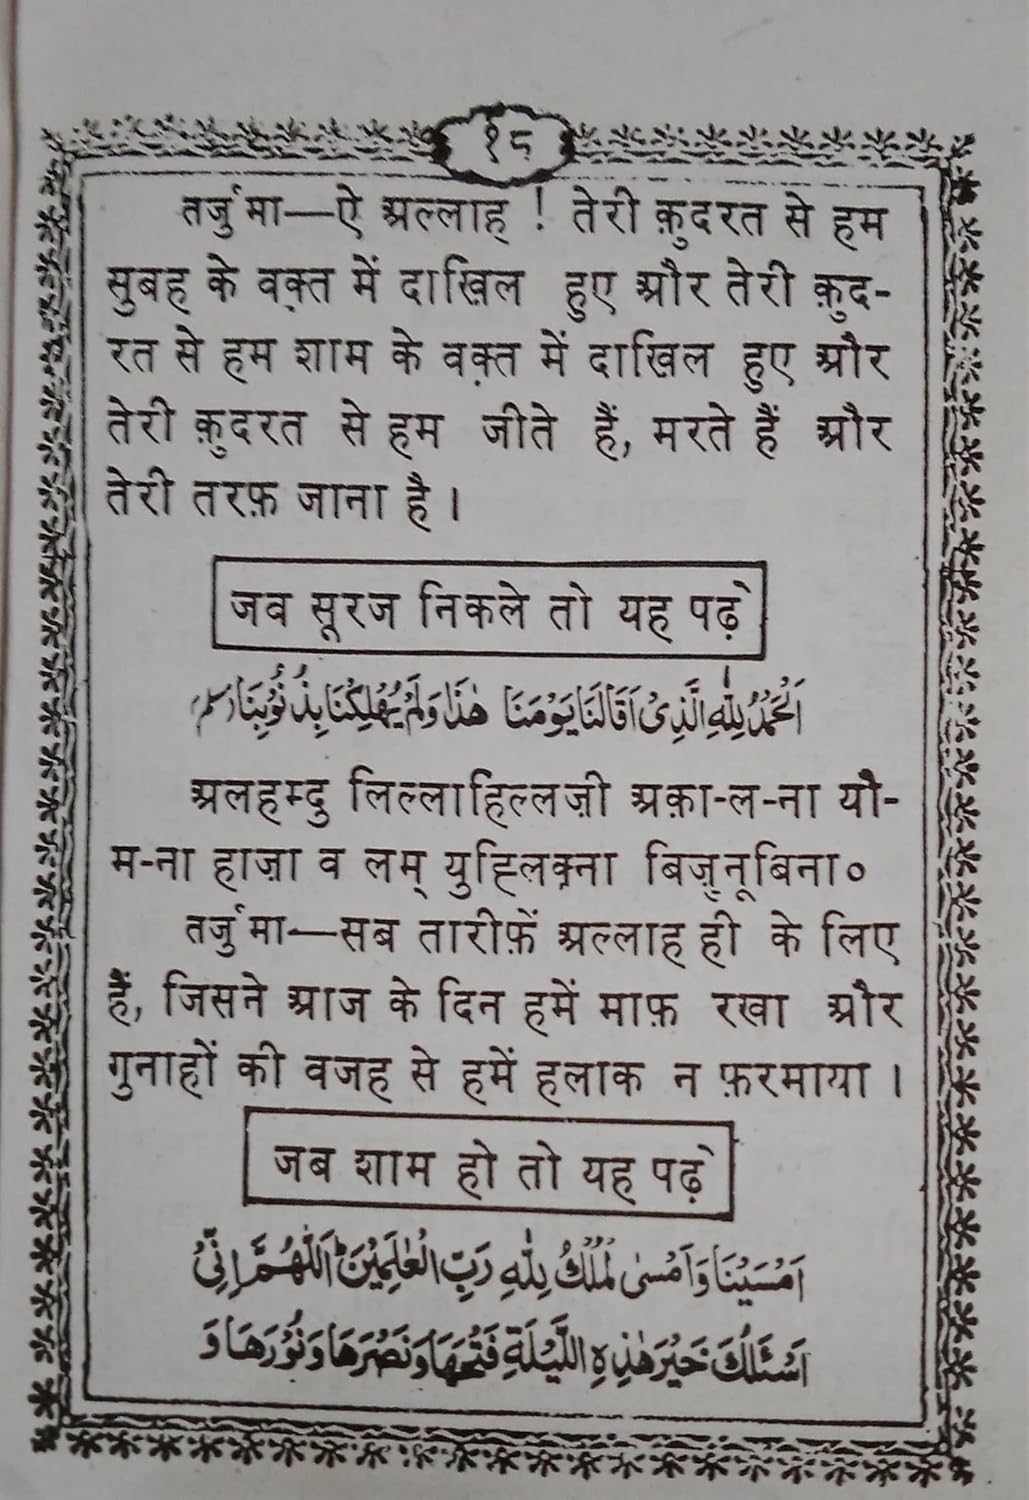 १८
तर्जुमा—ऐ अल्लाह् ! तेरी क़ुदरत से हम
सुबह के वक़्त में दाख़िल हुए और तेरी क़ुद-
रत से हम शाम के वक़्त में दाख़िल हुए और
तेरी क़ुदरत से हम जीते हैं, मरते हैं और
तेरी तरफ़ जाना है ।
जब सूरज निकले तो यह पढ़े
اَلْحَمْدُ لِلّٰهِ الَّذِیْ اَقَالَنَا یَوْمَنَا هٰذَا وَلَمْ یُهْلِکْنَا بِذُنُوْبِنَا (مسلم)
अलहम्दु लिल्लाहिल्लज़ी अक़ा-ल-ना यौ-
म-ना हाज़ा व लम् युह्लिक्ना बिज़ुनूबिना०
तर्जुमा—सब तारीफ़ें अल्लाह ही के लिए
हैं, जिसने आज के दिन हमें माफ़ रखा और
गुनाहों की वजह से हमें हलाक न फ़रमाया ।
जब शाम हो तो यह पढ़े
اَمْسَیْنَا وَاَمْسٰی لْمُلْكُ لِلّٰهِ رَبِّ الْعٰلَمِیْنَ ؕ اَللّٰهُمَّ اِنِّیْ
اَسْئَلُكَ خَیْرَ هٰذِهِ اللَّیْلَةِ فَتْحَهَا وَنَصْرَهَا وَنُوْرَهَا وَ